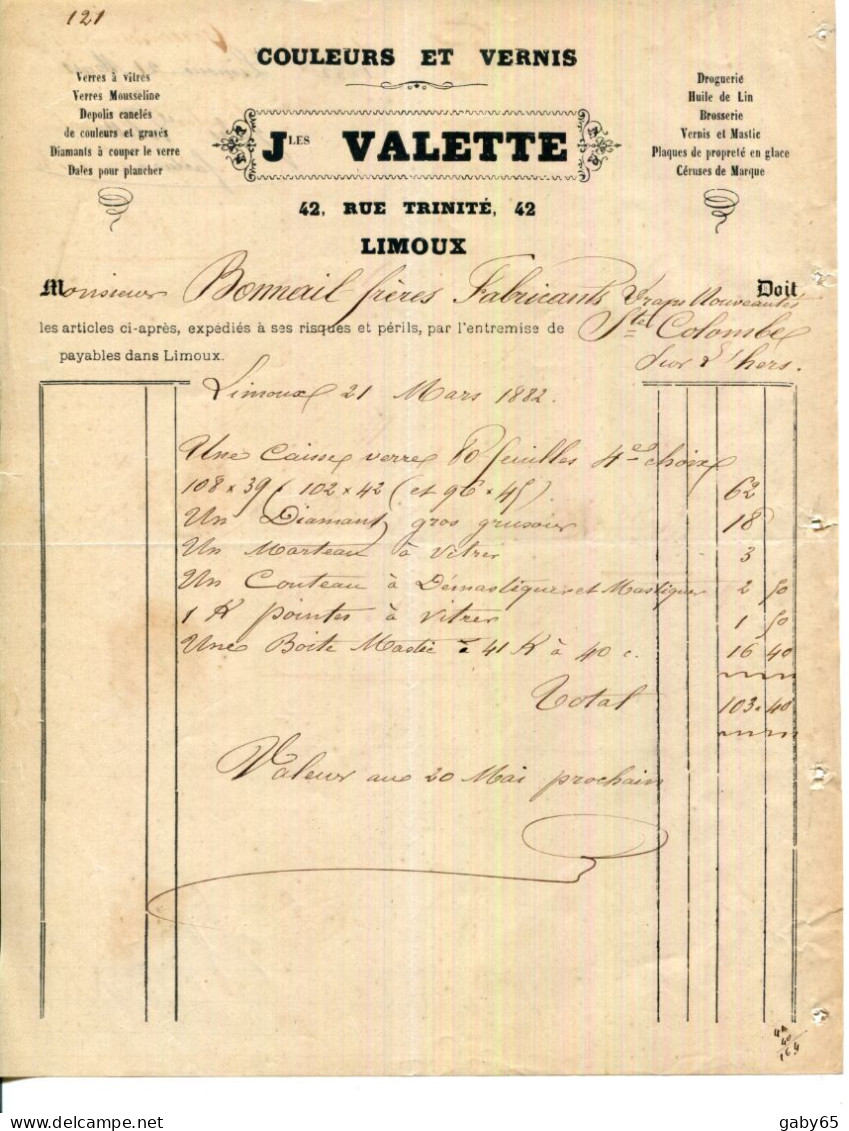 121
COULEURS ET VERNIS
Verres à vitres
Verres Mousseline
Depolis canelés
de couleurs et gravés
Diamants à couper le verre
Dales pour plancher
Jles VALETTE
Droguerie
Huile de Lin
Brosserie
Vernis et Mastic
Plaques de propreté en glace
Céruses de Marque
42, RUE TRINITÉ, 42
LIMOUX
Monsieur Bonnail frères Fabricants Draps Nouveautés Doit
les articles ci-après, expédiés à ses risques et périls, par l'entremise de Ste Colombe
payables dans Limoux. sur L'hers.
Limoux 21 Mars 1882.
Une Caisse verre 80 feuilles 4e choix
108 x 39 ( 102 x 42 ( et 96 x 45 ). 62
Un Diamant gros 18
Un Marteau à Vitrer 3
Un Couteau à Démastiquer et Mastiquer 2 50
1 K pointes à Vitrer 1 50
Une Boite Mastic à 41 K à 40 c. 16 40
Total 103.40
Valeur au 20 Mai prochain
41
40
164
gaby65